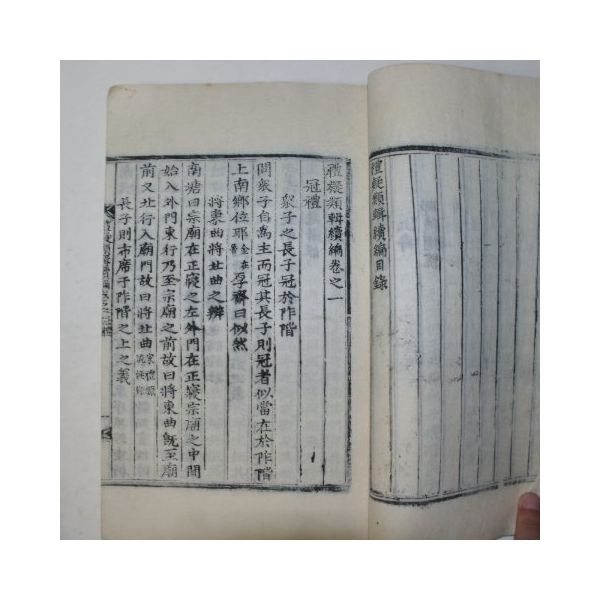 禮疑類輯續編目錄
禮疑類輯續編卷之一
冠禮
衆子之長子冠於阼階
問衆子自爲主而冠其長子則冠者似當在於阼階
上南鄕位耶 孚齋曰似然
將東曲將北曲之辨
南塘曰宗廟在正寢之左外門在正寢宗廟之中間
始入外門東行乃至宗廟之前故曰將東曲旣至廟
前又北行入廟門故曰將北曲
長子則布席于阼階之上之義